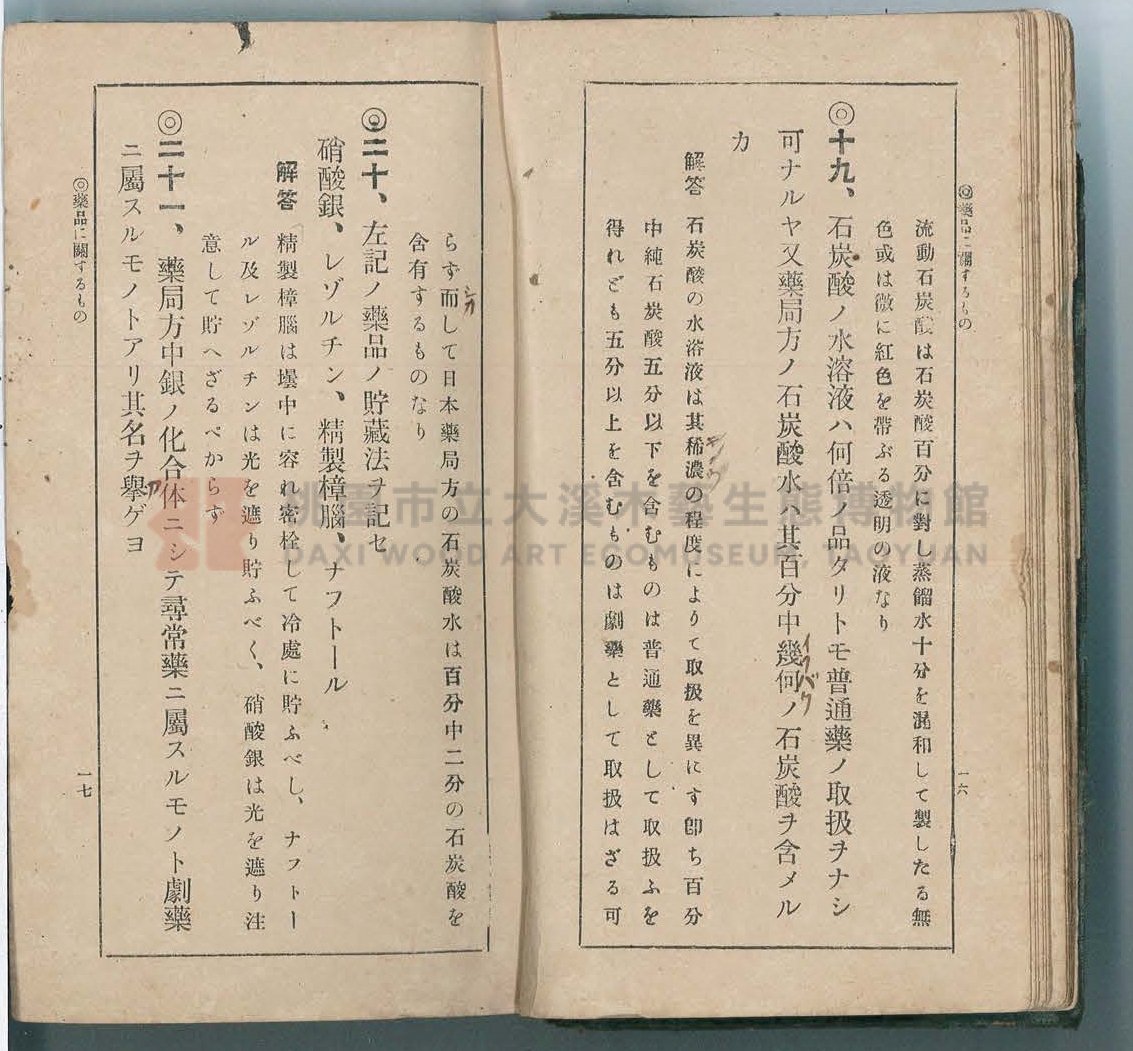 ◎藥品に關するもの
一六
流動石炭酸は石炭酸百分に對し蒸餾水十分を混和して製したる無
色或は微に紅色を帶ぶる透明の液なり
◎十九、石炭酸ノ水溶液ハ何倍ノ品タリトモ普通藥ノ取扱ヲナシ
可ナルヤ又藥局方ノ石炭酸水ハ其百分中幾何ノ石炭酸ヲ含メル
イクバク
カ
解答 石炭酸の水溶液は其稀濃の程度によりて取扱を異にす卽ち百分
中純石炭酸五分以下を含むものは普通藥として取扱ふを
得れども五分以上を含むものは劇藥として取扱はざる可
らず而して日本藥局方の石炭酸水は百分中二分の石炭酸を
シカ
含有するものなり
◎二十、左記ノ藥品ノ貯藏法ヲ記セ
硝酸銀、レゾルチン、精製樟腦、ナフトール
解答 精製樟腦は壜中に容れ密栓して冷處に貯ふべし、ナフトー
ル及レゾルチンは光を遮り貯ふべく、硝酸銀は光を遮り注
意して貯へざるべからず
◎二十一、藥局方中銀ノ化合体ニシテ尋常藥ニ屬スルモノト劇藥
ニ屬スルモノトアリ其名ヲ擧ゲヨ
◎藥品に關するもの
一七
桃園市立大溪木藝生態博物館
DAXI WOOD ART ECOMUSEUM, TAOYUAN